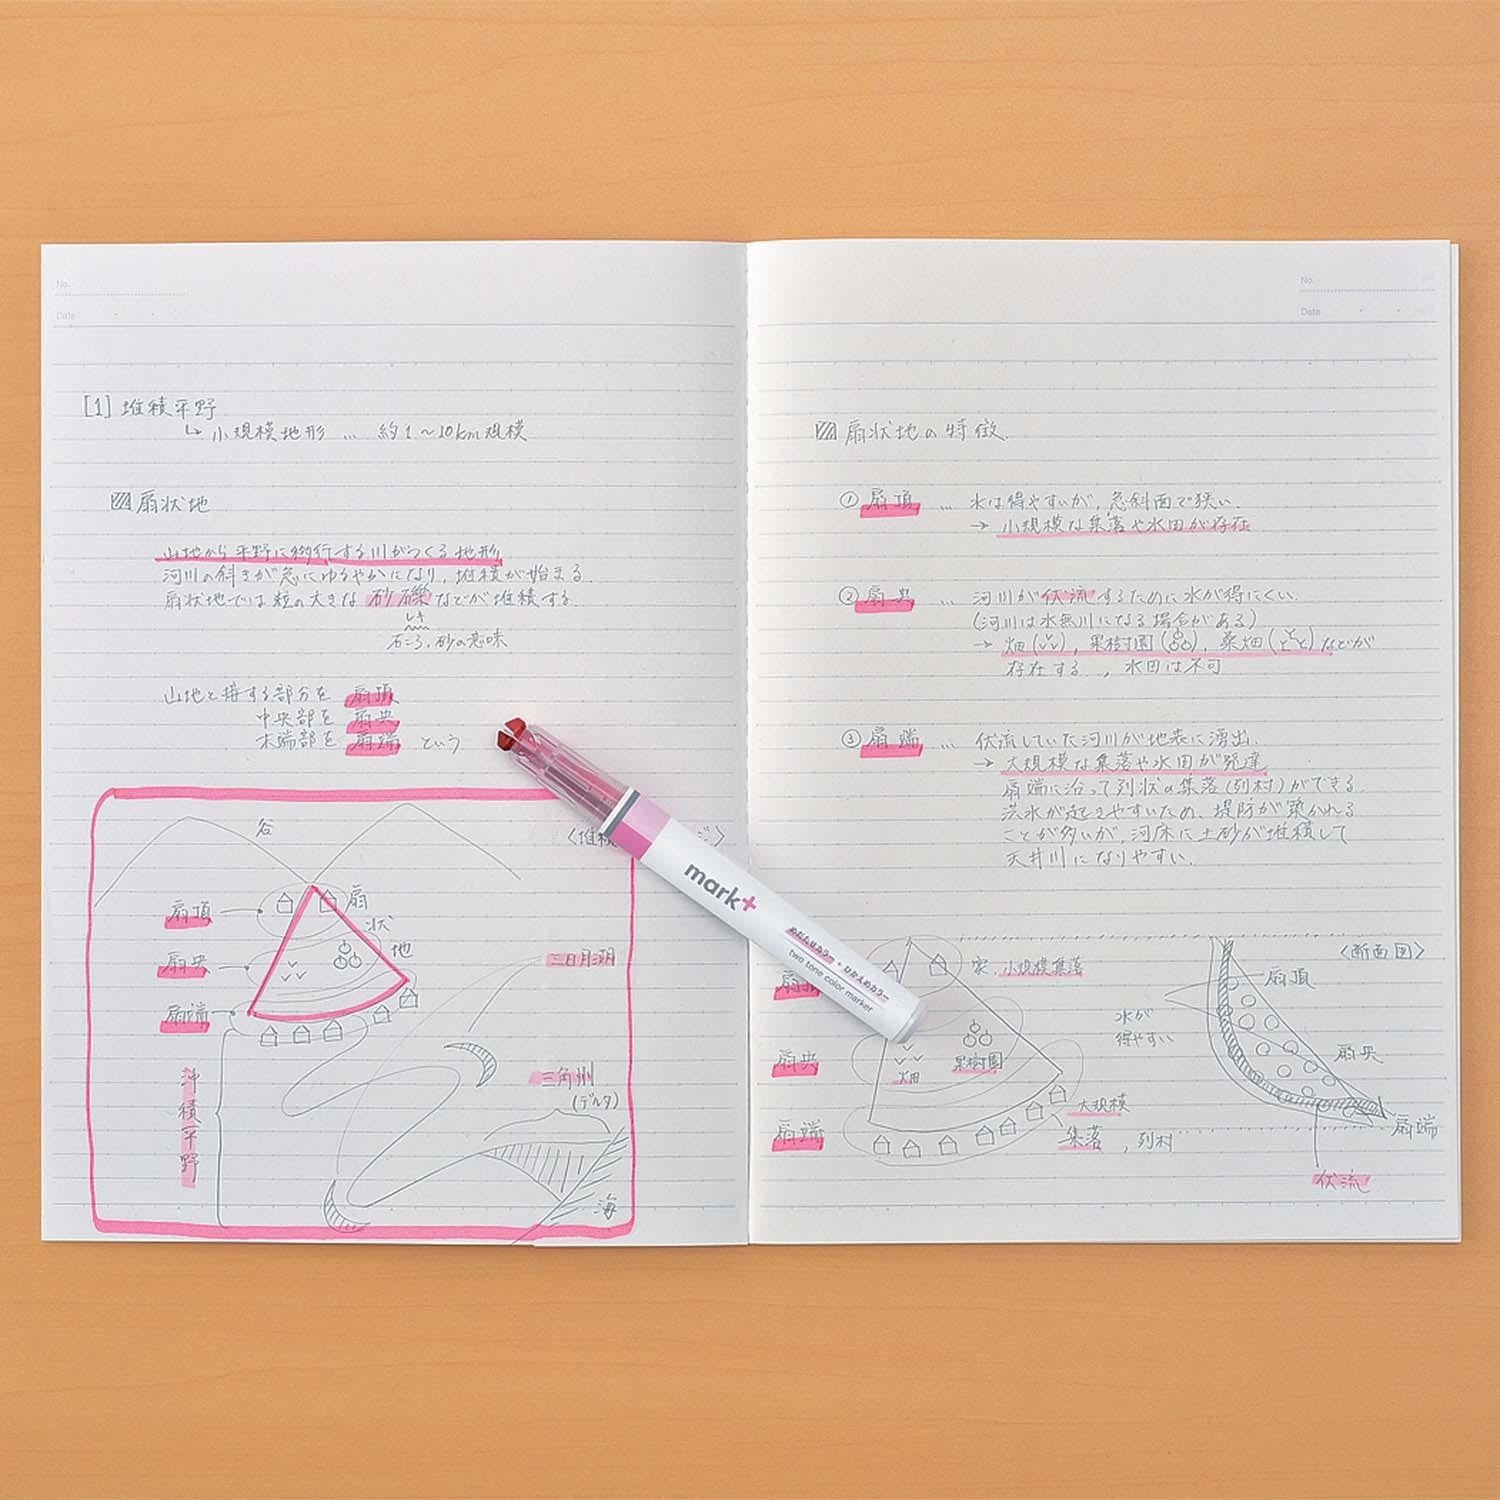 No.
Date
[1] 堆積平野
↳ 小規模地形 … 約1～10km規模
扇状地
山地から平野に移行する川がつくる地形
河川の傾きが急にゆるやかになり、堆積が始まる.
扇状地では粒の大きな 砂礫などが堆積する.
れき
石ころ、砂の意味
山地と接する部分を 扇頂
中央部を 扇央
末端部を 扇端 という
谷
扇頂
扇状地
扇央
扇端
三日月湖
三角州
(デルタ)
沖積平野
海
mark+
めだたせカラー + ひかえめカラー
two tone color marker
No.
Date
扇状地の特徴.
① 扇頂 … 水は得やすいが、急斜面で狭い.
→ 小規模な集落や水田が存在
② 扇央 … 河川が伏流するために水が得にくい.
(河川は水無川になる場合がある)
→ 畑( )、果樹園( )、桑畑( )などが
存在する.、水田は不可
③ 扇端 … 伏流していた河川が地表に湧出.
→ 大規模な集落や水田が発達
扇端に沿って列状の集落(列村)ができる.
洪水が起きやすいため、堤防が築かれる
ことが多いが、河床に土砂が堆積して
天井川になりやすい.
家、小規模集落
扇央
畑
果樹園
扇端
大規模
集落、列村
〈断面図〉
扇頂
水が
得やすい
扇央
扇端
伏流